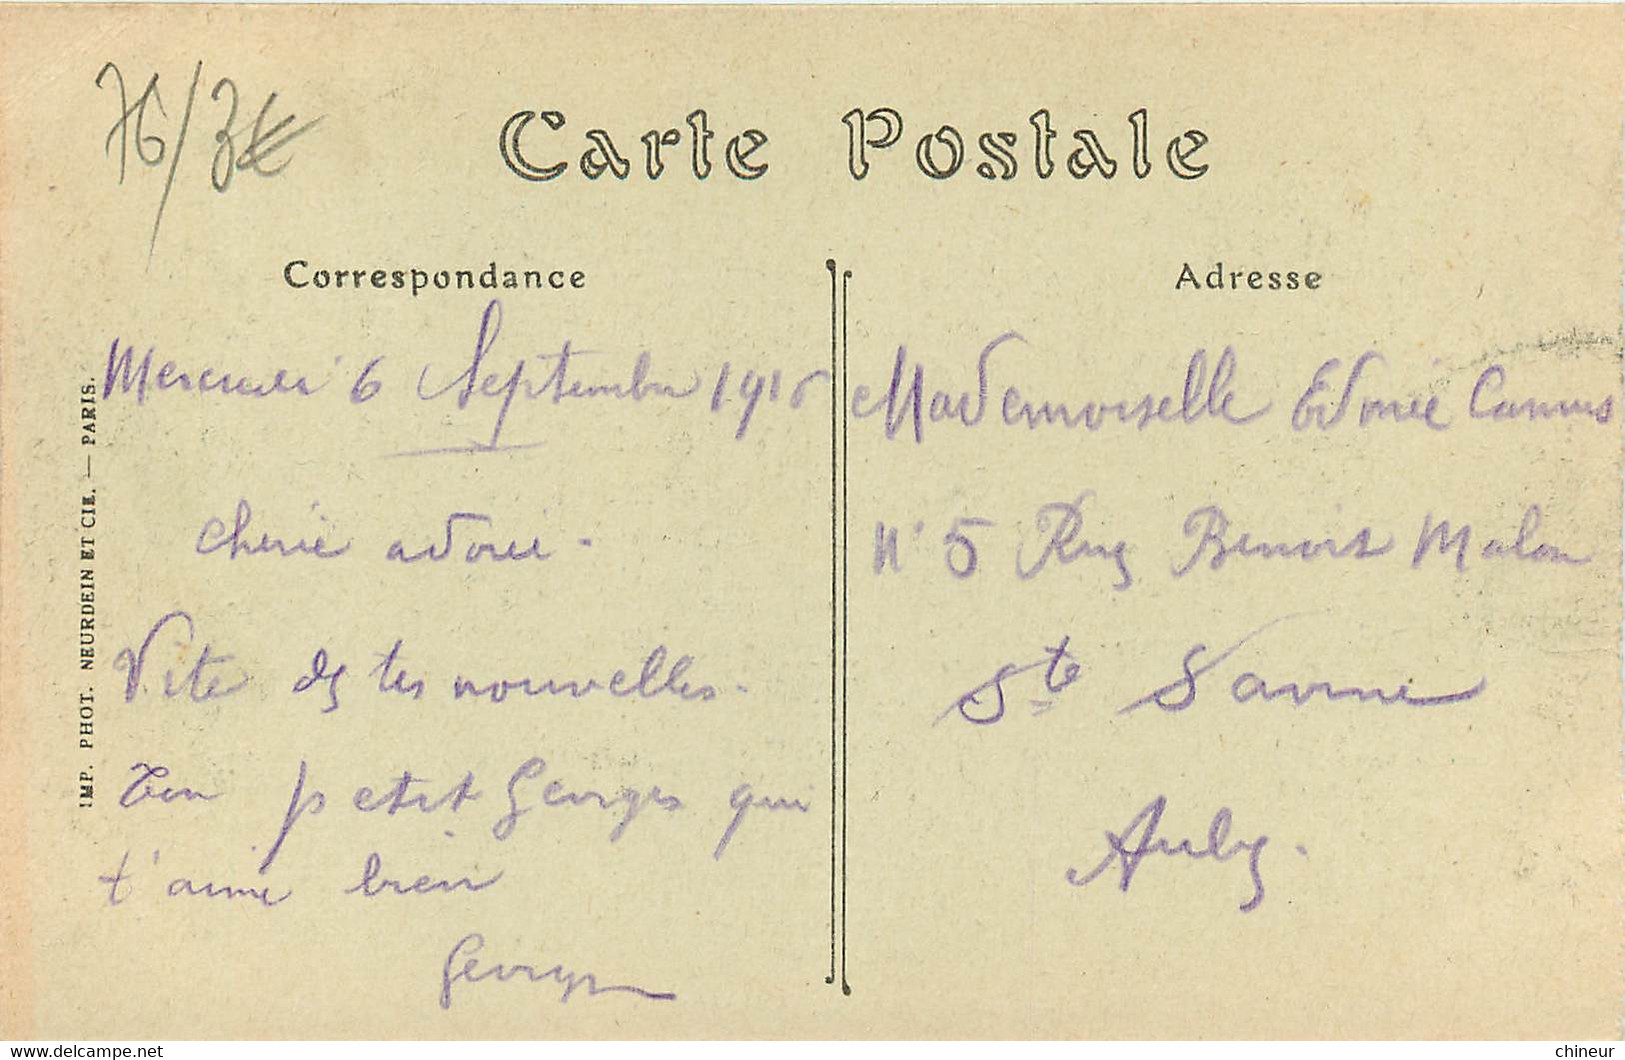 76/3€
Carte Postale
Correspondance
Adresse
IMP. PHOT. NEURDEIN ET CIE. — PARIS.
Mercredi 6 Septembre 1916
Cherie adorée -
Vite de tes nouvelles -
Ton petit Georges qui
t'aime bien
Georges
Mademoiselle Edmée Camus
N° 5 Rue Benoit Malon
Ste Savine
Aube.
chineur